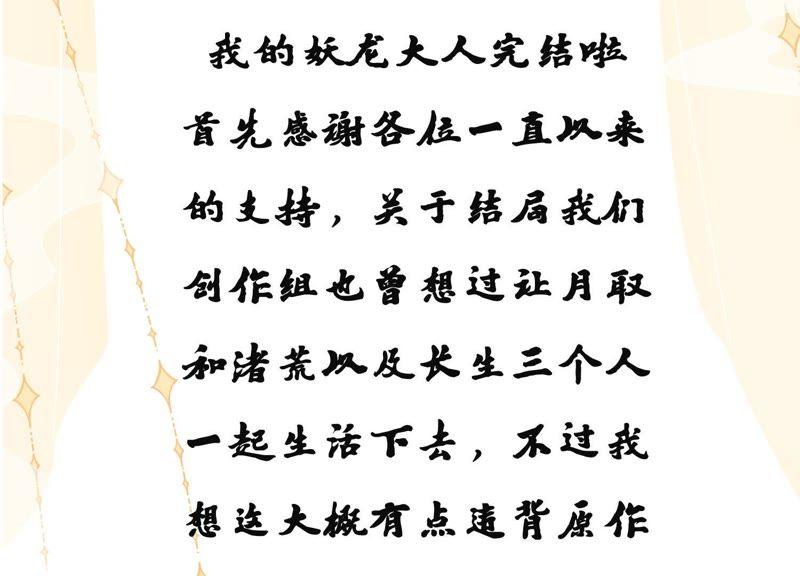 我的妖龙大人完结啦
首先感谢各位一直以来
的支持，关于结局我们
创作组也曾想过让月取
和渚荒以及长生三个人
一起生活下去，不过我
想这大概有点违背原作